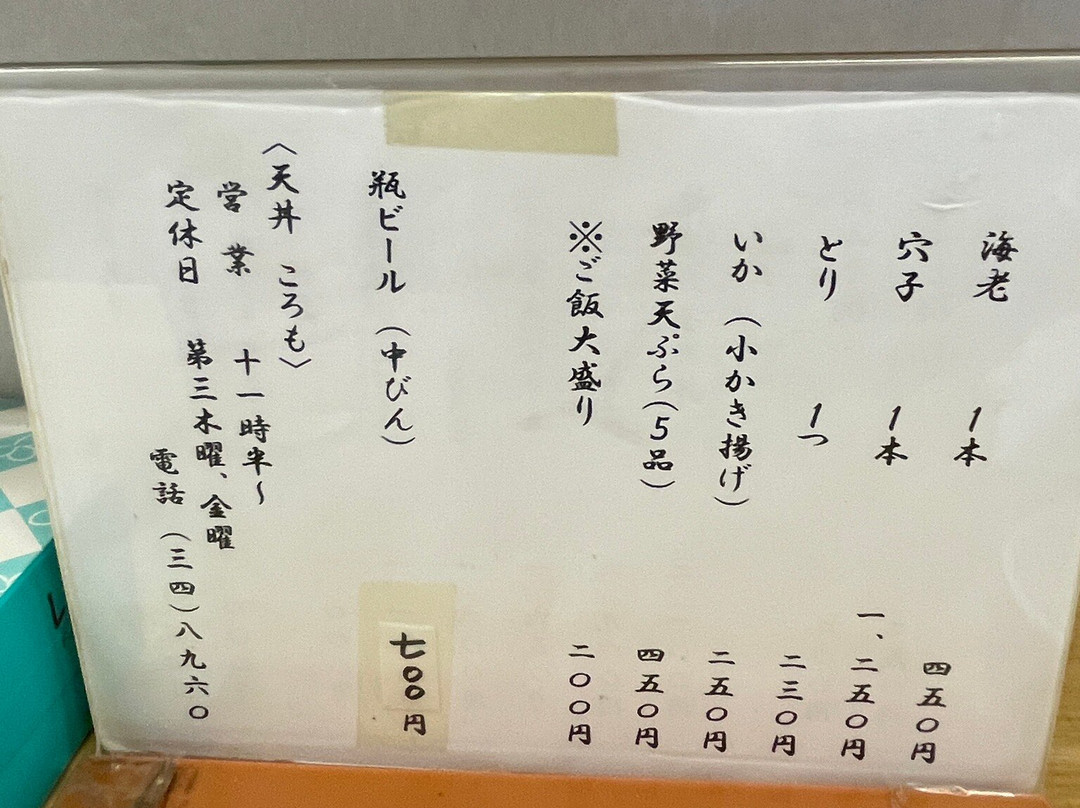 海老 1本 四五〇円
穴子 1本 一、二五〇円
とり 1つ 二三〇円
いか（小かき揚げ） 二五〇円
野菜天ぷら（5品） 四五〇円
※ご飯大盛り 二〇〇円
瓶ビール（中びん） 七〇〇円
〈天丼 ころも〉
営業 十一時半～
定休日 第三木曜、金曜
電話（三四）八九六〇